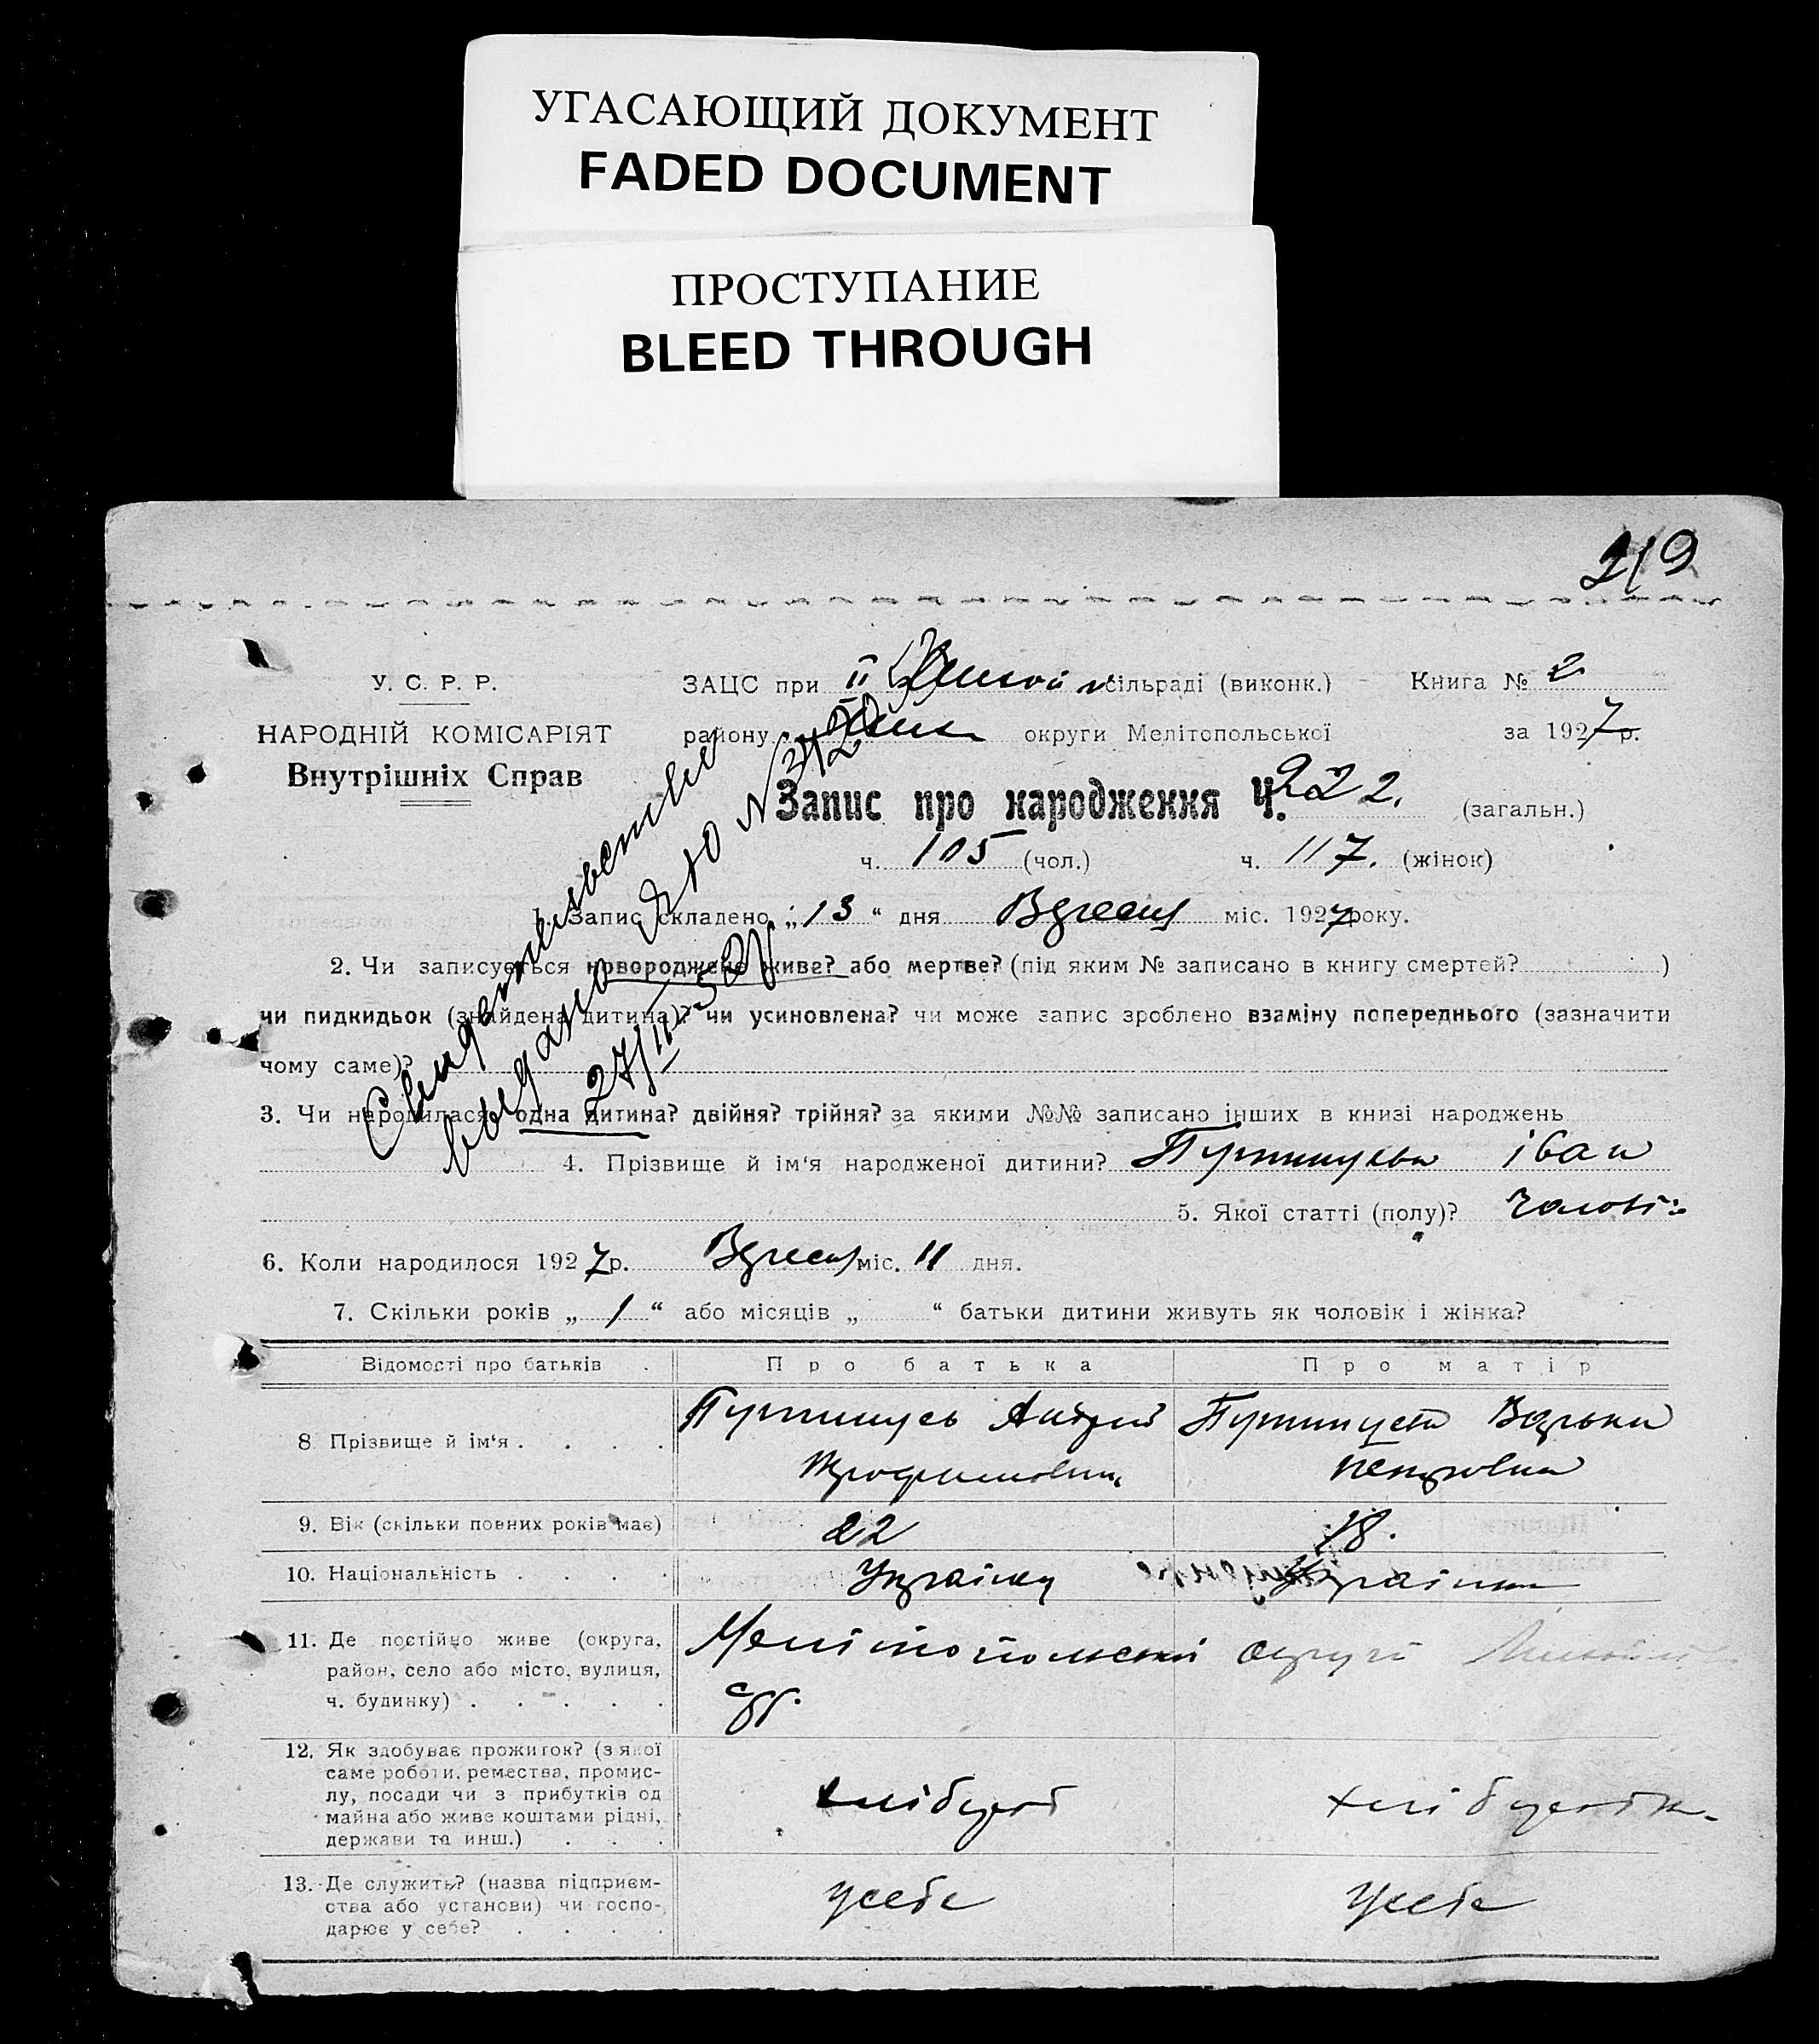 УГАСАЮЩИЙ ДОКУМЕНТ
FADED DOCUMENT
ПРОСТУПАНИЕ
BLEED THROUGH
219
У. С. Р. Р.
НАРОДНІЙ КОМІСАРІЯТ
Внутрішніх Справ
ЗАЦС при II сільраді (виконк.) Книга № 2
району округи Мелітопольської за 1927 р.
Запис про народження Ч. 222. (загальн.)
ч. 105 (чол.) ч. 117. (жінок)
Свидетельство
выдано
27/II 52 г.
1. Запис складено „13“ дня Вдресня міс. 1927 року.
2. Чи записується новороджене живе? або мертве? (під яким № записано в книгу смертей? )
чи пидкидьок (знайдена дитина)? чи усиновлена? чи може запис зроблено взаміну попереднього (зазначити
чому саме)?
3. Чи народилася одна дитина? двійня? трійня? за якими №№ записано інших в книзі народжень
4. Прізвище й ім‘я народженої дитини? іван
5. Якої статті (полу)? чолові
6. Коли народилося 1927 р. Вдресня міс. 11 дня.
7. Скільки років „ 1 “ або місяців „ “ батьки дитини живуть як чоловік і жінка?
Відомості про батьків . Про батька Про матір
8 Прізвище й ім‘я . . . . Андрій
Трофимович Петровна
9. Вік (скільки повних років має) 22 18.
10. Національність . . . . Українец Українка
11. Де постійно живе (округа, район, село або місто, вулиця, ч. будинку) . . . . . Мелітопольскої округи
12. Як здобуває прожиток? (з якої саме роботи, ремества, промислу, посади чи з прибутків од майна або живе коштами рідні, держави та инш.) . . . хлібороб хлібороб
13. Де служить? (назва підприємства або установи) чи господарює у себе? . . . . усебе усебе